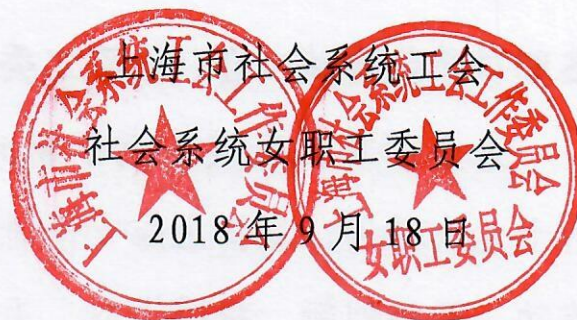 上海市社会系统工会
社会系统女职工委员会
2018年9月18日
上海市社会系统工会工作委员会
上海市社会系统工会工作委员会
女职工委员会